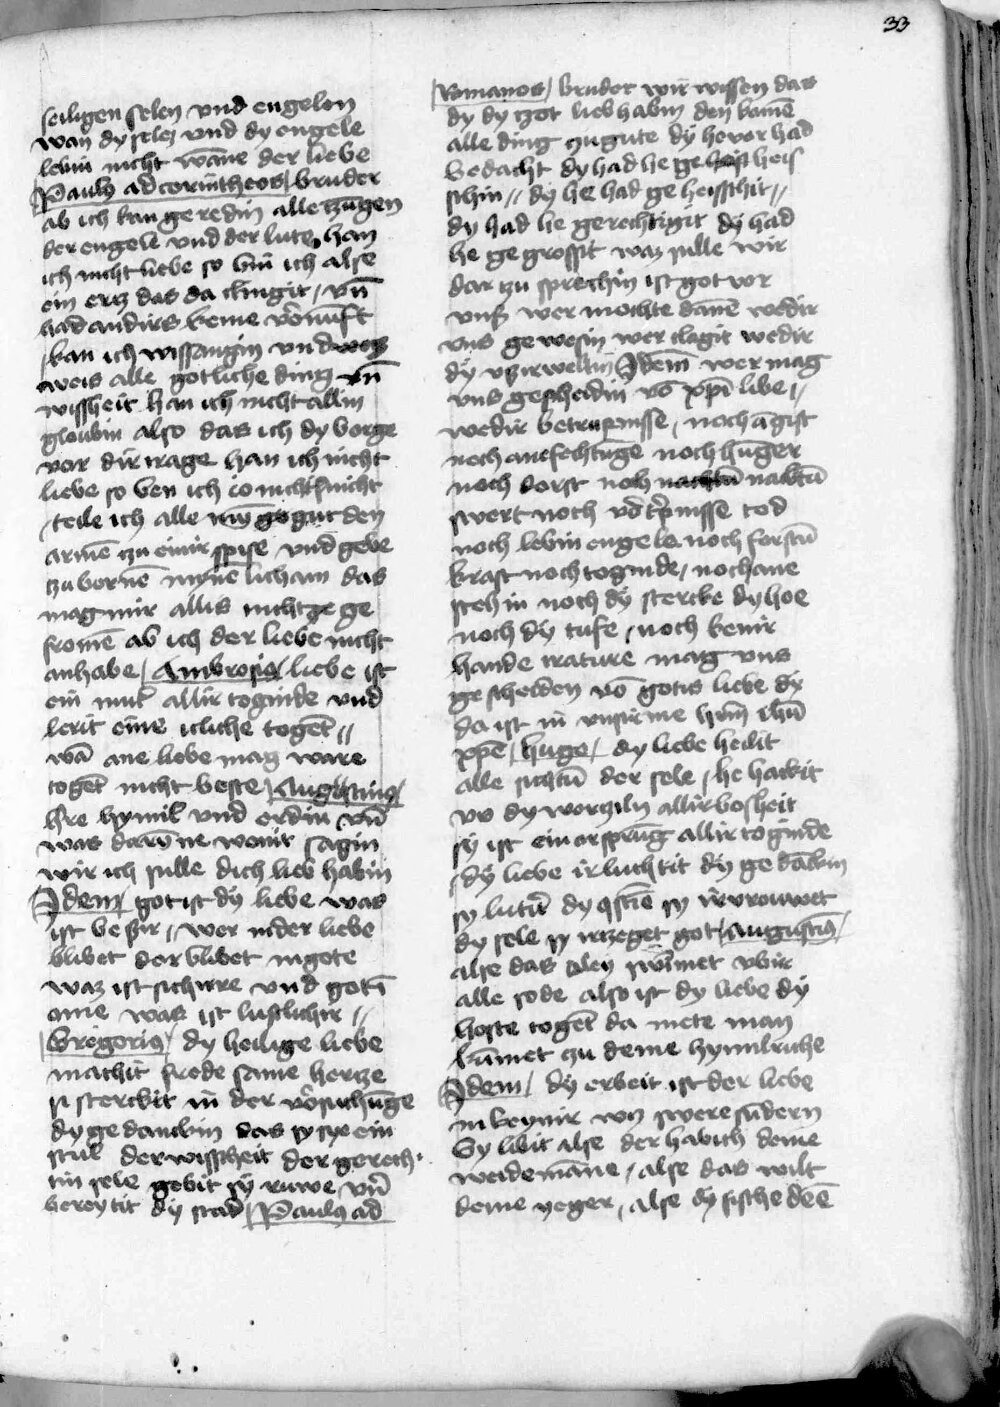 33
seiligen selen vnd engelen
wan dy selen vnd dy engele
lebin nicht wāne der liebe
Paulus ad corintheos bruder
ab ich kan ge redin alle tzungen
der engele vnd der lute han
ich nicht liebe so bin ich alse
ein ertz das da clingit / vn̄
had andirs keine vornuft
kan ich wissaugin vnd
weis alle gotliche ding vn̄
wissheit han ich nicht allin
gloubin also das ich dy berge
vor dir trage han ich nicht
liebe so ben ich io nicht nicht
teile ich alle gut den
armē tzu einir spise vnd gebe
tzu bornē mynē licham das
mag mir allis nicht ze ge
fromē ab ich der liebe nicht
anhabe / Ambrosius / liebe ist
ein mutr allir toginde vnd
lerit eine icliche togēt //
wā ane liebe mag ware
togēt nicht beste / Augustinus /
hre hymil vnd erdin vn̄
was darȳne wonit sagin
wir ich sulle dich lieb habin
Idem / got ist dy liebe was
ist beßir / wer in der liebe
blibet der blibet in gote
waz ist sichirre vnd got ī
eme was ist lustlicher //
Gregorius / dy heilige liebe
machit frede same hertze
si sterckit in der vorsuchūge
dy gedanckin das sy sye ein
stul der wissheit der gerech
tin sele gebit sy ruwe vn̄
bereytit dy stad / Paulus ad
Romanos / bruder wir wissen das
dy dy got lieb habin den komē
alle ding zu gute dy hevor had
bedacht dy had he ge heis
schin // dy he had ge heisschit //
dy had he gerechtigit dy had
he ge grossit waz sulle wir
dar tzu sprechin ist got vor
vns wer mochte dāne wedir
vns ge wesin wer clagit wedir
dy vßirweltin Idem wer mag
vns gescheidin vō xpī libe //
wedir betrupnisse / noch āgist
noch anefechtūge noch hūger
noch dorst noch nacktū
swert noch tod
noch lebin engele noch forstū
kraft noch toginde / noch ane
stehin noch dy stercke dy hoe
noch dy tufe / noch keinir
hande crature mag vns
ge scheiden vō gotis liebe dy
da ist in vnsirme hrn̄ ihū
xpē / hugo / dy liebe heilit
alle suchtū der sele / he hackit
vs dy wortziln allir bosheit
sy ist ein orsprūg allir toginde
dy liebe irluchtit dy ge dāckin
sy lutirt dy sy irvrouwet
dy sele sy irtzeget got / Augustinus /
alse das oley swimmet vbir
alle sode also ist dy liebe dy
hoste togēt da mete man
kūmet zu deme hymilriche
Idem / dy erbeit ist der liebe
in keynir wys swere sūdern
Sy libit alse der habich deme
weidemāne / alse das wilt
deme yeger / alse dy fische dēē